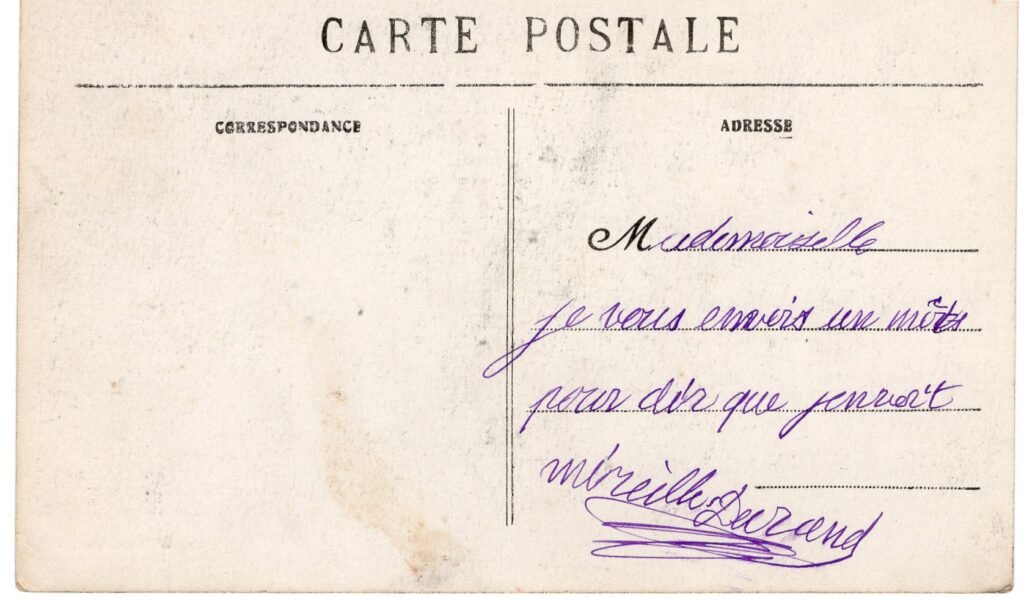 CARTE POSTALE
CORRESPONDANCE
ADRESSE
Mademoiselle
je vous envois un môts
pour dir que jenvoit
mireille Durand